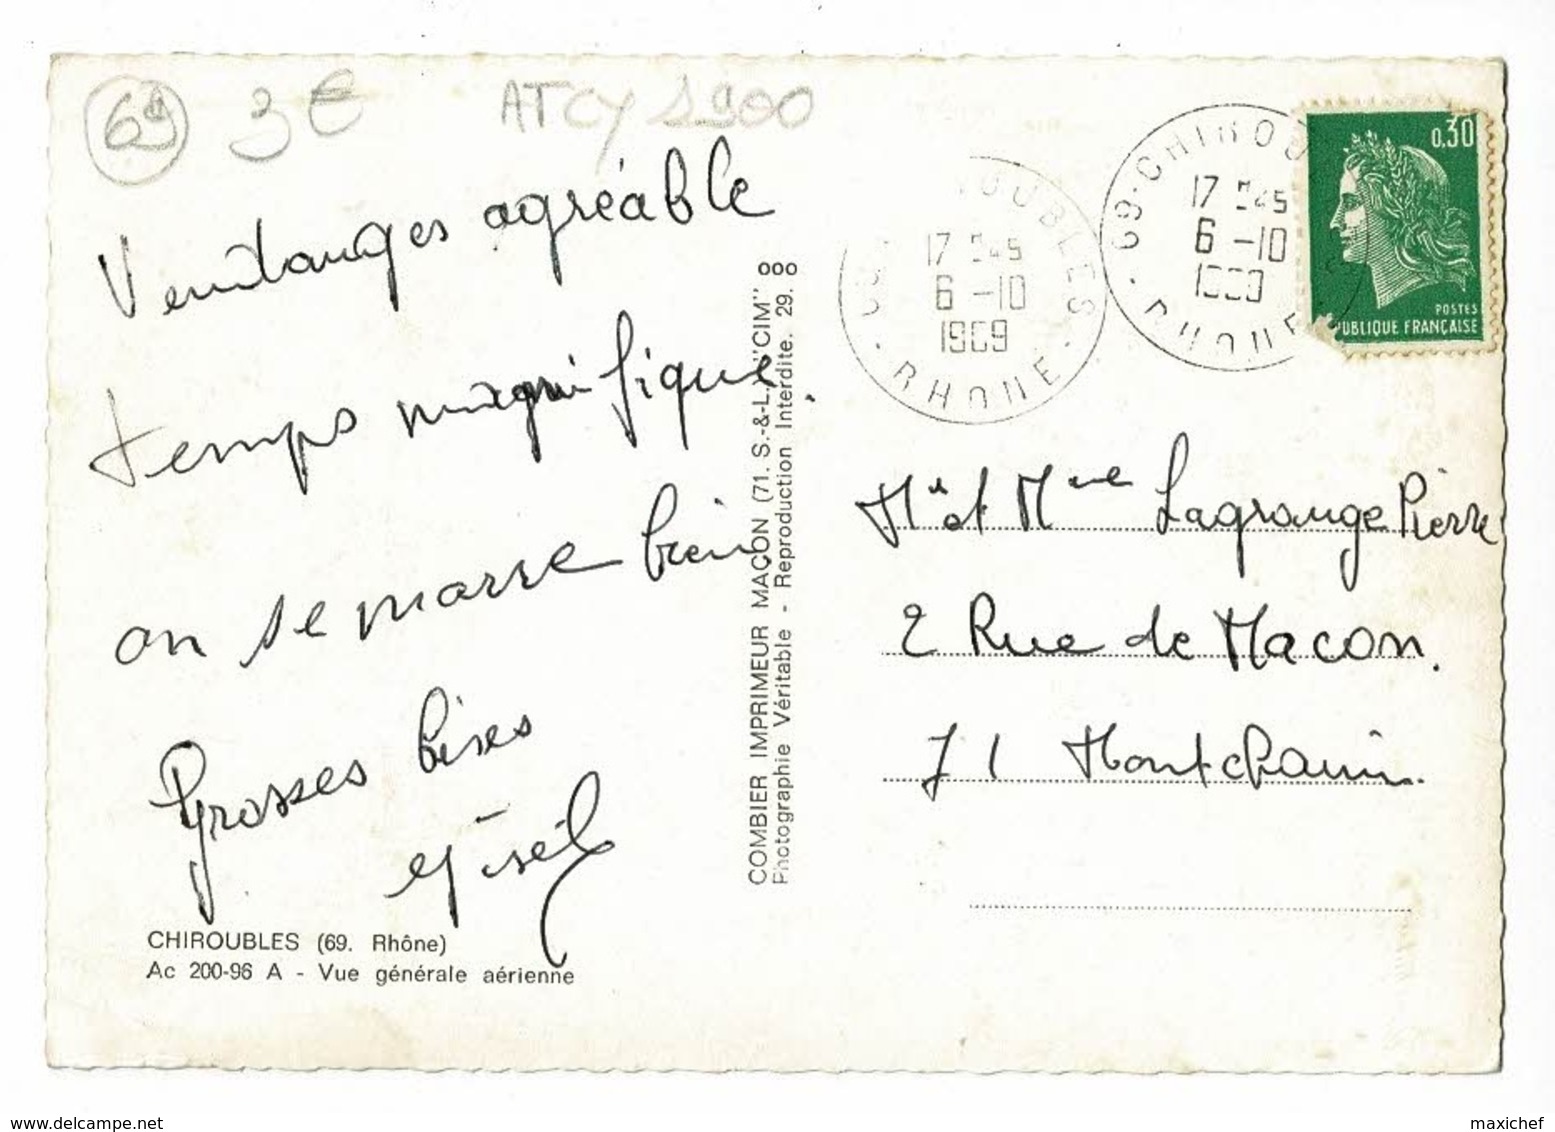 69 3€
Vendanges agréable
temps magnifique
on se marre bien
Grosses bises
CHIROUBLES (69. Rhône)
Ac 200-96 A - Vue générale aérienne
COMBIER IMPRIMEUR MAÇON (71. S.-&-L.) "CIM" ooo
Photographie Véritable - Reproduction Interdite. 29.
OUBLES
17 H45
6 -10
1969
RHONE
69-CHIROU
17 H45
6 -10
1969
RHONE
0,30
POSTES
PUBLIQUE FRANÇAISE
Mr et Mme Lagrange Pierre
2 Rue de Macon.
71 Montchanin.
www.delcampe.net
maxichef